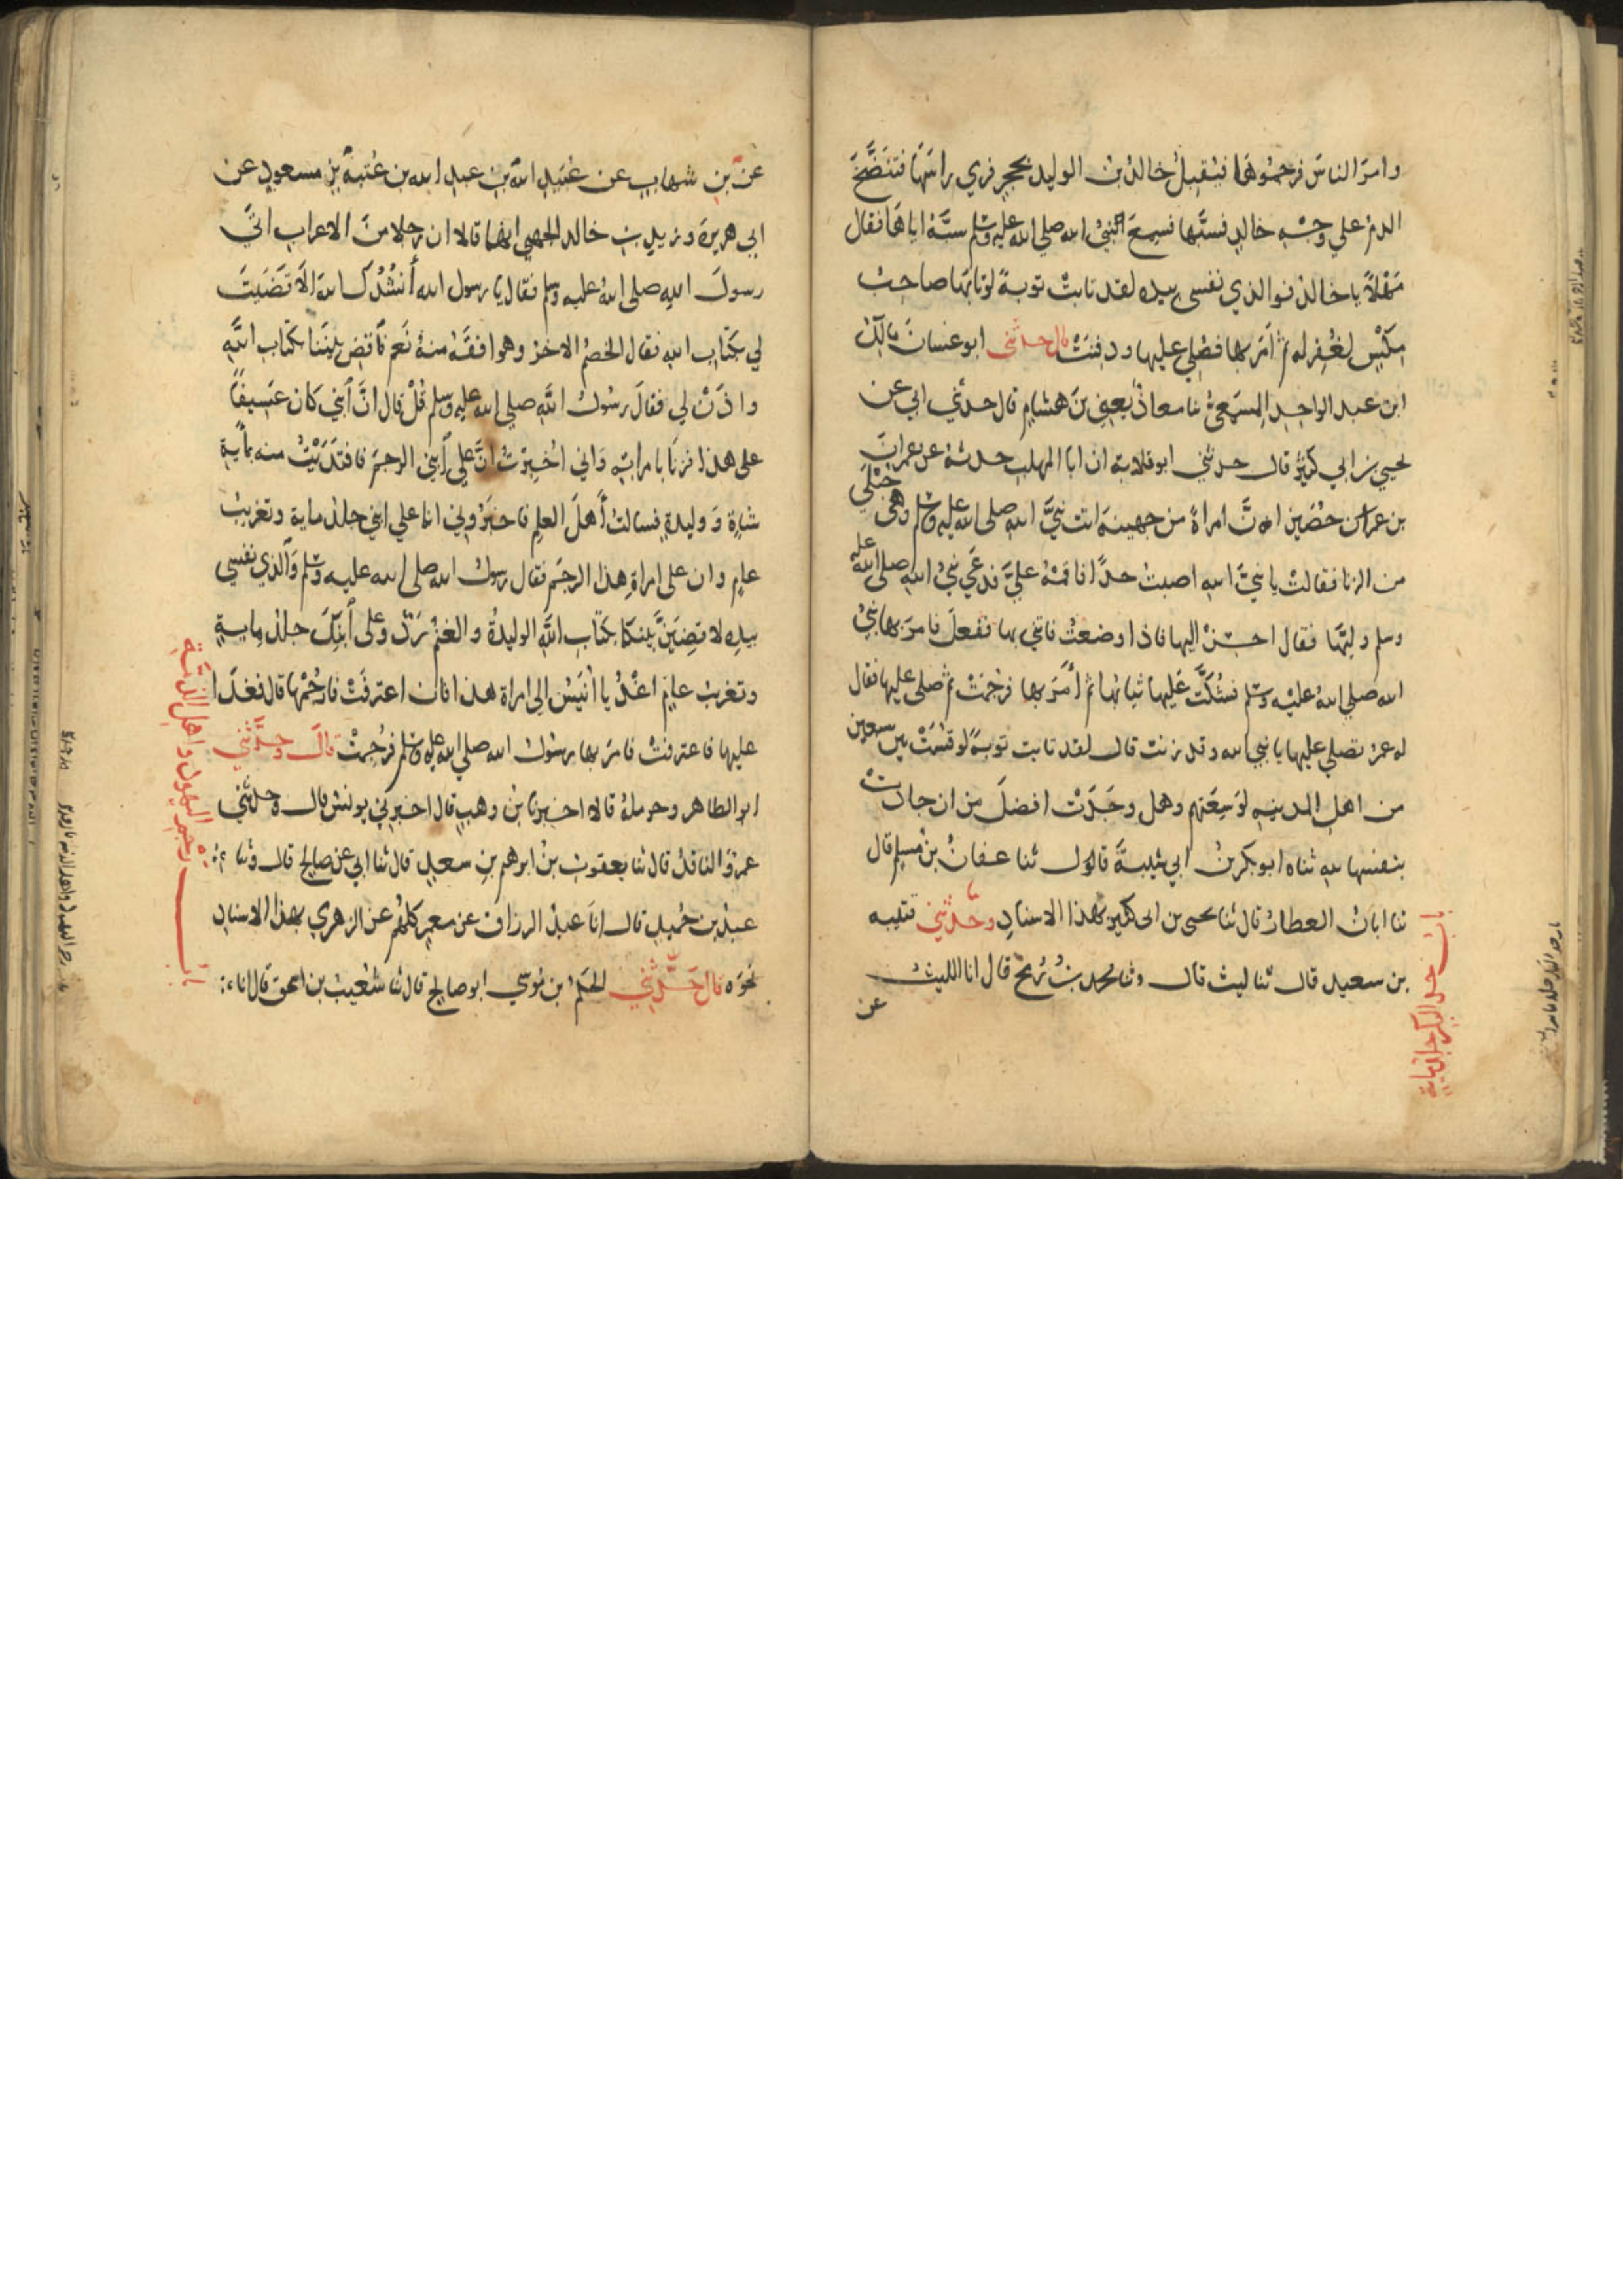 وامرَ الناسَ فرجمُوهَا فيُقبِلُ خالدُ بنُ الوليد بحجرٍ فرمي راسَهَا فتَنَضَّخَ
الدمُ علي وجْهِ خالدٍ فسبَّها فسمعَ النبيُ صلي اللهُ عليه وسلم سبَّهُ اياهَا فقال
مَهْلاً يا خالدُ فوالذي نفسي بيده لقد تابتْ توبةً لوتابَهَا صاحبُ
مَكْسٍ لغُفِرَ له ثم اَمَرَ بها فصُلي عليها ودفِنَتْ قال حدثني ابو غسانَ مالكُ
ابن عبد الواحِدِ المِسْمَعيُ نا معاذٌ يعني بنَ هشامٍ قال حدثني ابي عن
يحيي بن ابي كثيرٍ قال حدثني ابو قلابة ان ابا المهلب حدثهُ عن عمرانَ
بن حُصَينٍ انَّ امراةً من جهينةَ اتت نبيَّ اللهِ صلي الله عليه وسلم وهي حُبْلَي
من الزنا فقالتْ يا نبيَّ اللهِ اصبتُ حدًّا فاقمْهُ عليَّ فدعي نبيُ اللهِ صلي الله عليه
وسلم وليَّهَا فقال احسِنْ اليها فاذا وضعتْ فاتني بها ففعلَ فامرَ بها نبيُ
الله صلي اللهُ عليْه وسلم فشُكَّتْ عَليها ثيابُها ثم اَمَرَ بها فرُجمَتْ ثم صلي عليها فقال
له عمرُ تصلي عليها يا نبي الله وقد زنت قال لقد تابت توبةً لو قُسِمَتْ بين سبعين
من اهل المدينهِ لوَسِعَتهم وهل وجَدَتْ افضلَ من ان جادت
بنفسها للهِ ثناه ابو بكر بنُ ابي شيبةَ قال ثنا عفانُ بن مسلمٍ قال
ثنا ابانُ العطارُ قال ثنا يحيي بن ابي كثيرٍ بهذا الاسنادِ وحدَّثني قتيبه
بن سعيدٍ قال ثنا ليث قال وثنا محمد بنُ رُمحٍ قال انا الليث
عن
بابُ حد البكر جلد ماية
عن بنِ شهابٍ عن عُبَيدِ اللهِ بنِ عبدِ الله بن عُتبةَ بنِ مسعودٍ عن
ابي هريرةَ وزيدِ بن خالد الجهني انهما قالا ان رجلا منَ الاعرابِ اتَي
رسولَ اللهِ صلي اللهُ عليه وسلم فقال يا رسول الله أَنشُدُكَ اللهَ الاَّ قَضَيتَ
لي بكتابِ اللهِ فقال الخصْمُ الاخرُ وهو افقَهُ منهُ نَعمْ فاقضِ بيْنَنا بكتابِ اللَّهِ
واذَنْ لي فقالَ رسُولُ اللَّهِ صلي الله عليه وسلم قُلْ قال انَّ ابني كان عَسِيفًا
علي هذا فزنَا بامراتِهِ واني اُخْبِرتُ انَّ علي اَبني الرجمَ فافتَدَيْتُ منه بمأيةِ
شاةٍ ووليدةٍ فسالتُ أَهلَ العلمِ فاخبَرُوني انما علي ابني جلدُ ماية وتغريبُ
عامٍ وان علي امراةِ هذا الرجمَ فقال رسولُ الله صلي الله عليه وسلم والذي نفسي
بيدِه لاقضِيَنَّ بينكما بكتابِ اللَّهِ الوليدةُ والغنمُ رَدٌّ وعلي ابنِكَ جلدُ مِايةٍ
وتغريبُ عامٍ اغْدُ يا انَيْسُ الي امراة هذا فان اعترفَتْ فارجُمْها قال فغَدَا
عليها فاعترفتْ فامرَ بها رسُولُ الله صلي الله عليه وسلم فرُجمتْ قالَ وحدَّثني
ابو الطاهر وحرملةُ قالا اخبرنا بن وهبٍ قال اخبرني يونسُ قال وحدثني
عمرٌو الناقدُ قال ثنا يعقوبُ بنُ ابرهيم بنِ سعيدٍ قال ثنا ابي عن صالحٍ قال وثنا
عبدُ بن حُميدٍ قال انا عبدُ الرزاق عن معمرٍ كلهُم عن الزهري بهذا الاسنادِ
نحْوَه قال حَدَّثني الحكمُ بن مُوسي ابو صالحٍ قال ثنا شُعَيبُ بن اسحق قال انا
بابُ رجمِ اليهودِ واهلِ الذمَّةِ